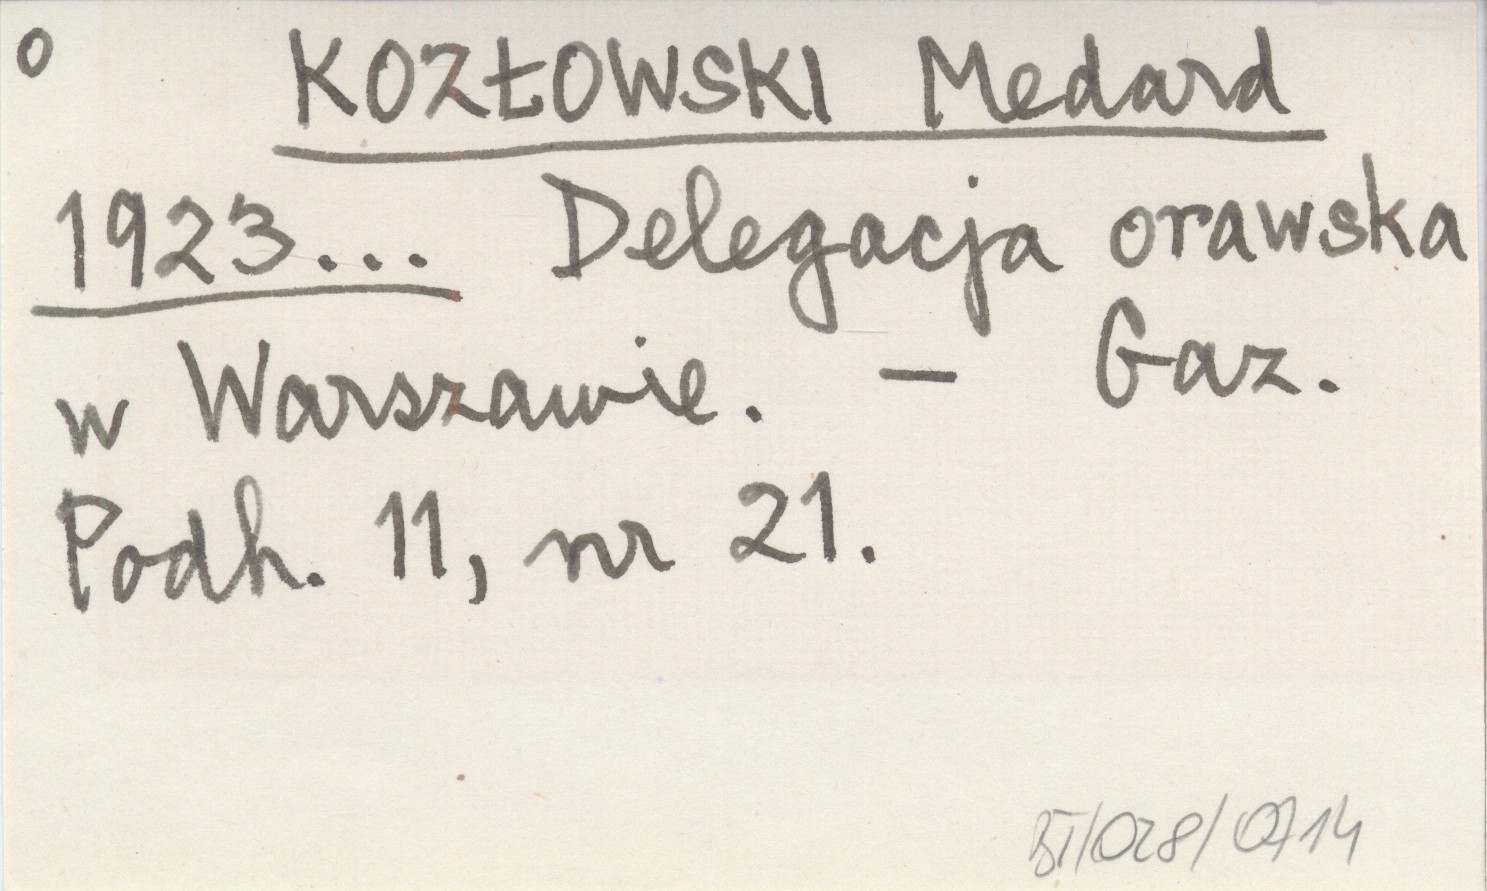 o KOZŁOWSKI Medard
1923... Delegacja orawska
w Warszawie. — Gaz.
Podh. 11, nr 21.
BT/028/0714